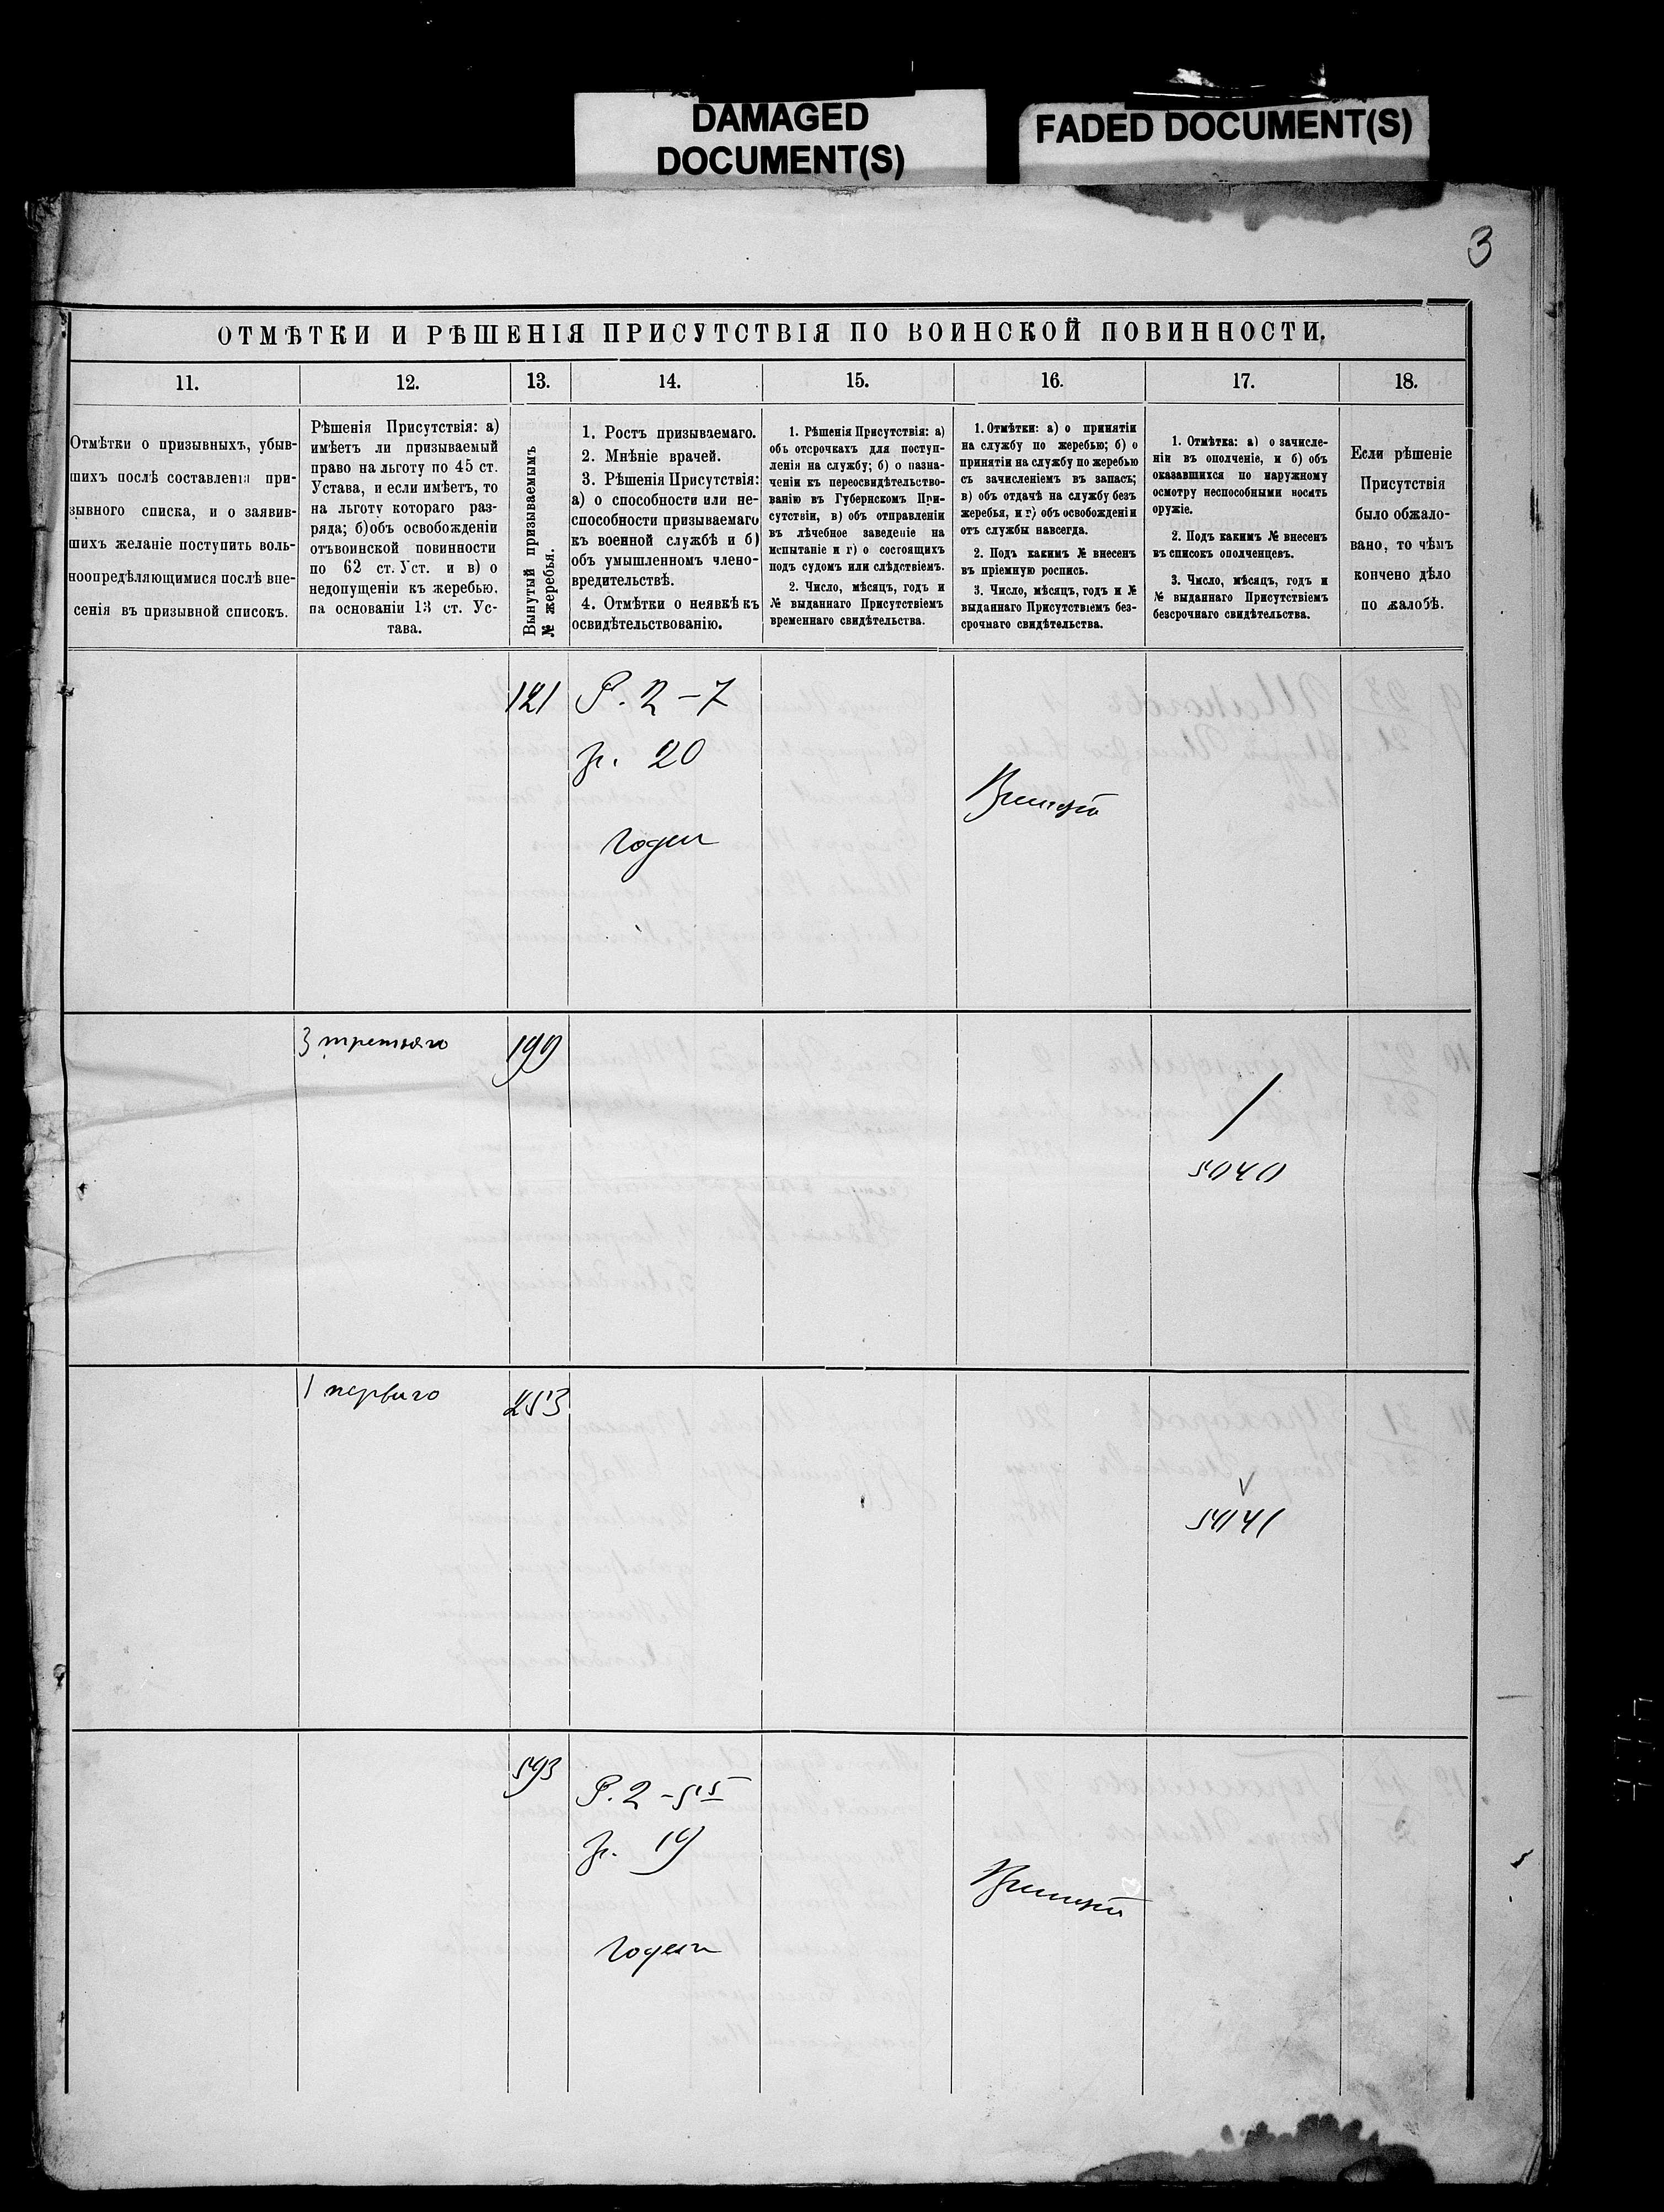 DAMAGED
DOCUMENT(S)
FADED DOCUMENT(S)
3
ОТМѢТКИ И РѢШЕНІЯ ПРИСУТСТВІЯ ПО ВОИНСКОЙ ПОВИННОСТИ.
11.
12.
13.
14.
15.
16.
17.
18.
Отмѣтки о призывныхъ, убыв-
шихъ послѣ составленія при-
зывного списка, и о заявив-
шихъ желаніе поступить воль-
ноопредѣляющимися послѣ вне-
сенія въ призывной списокъ.
Рѣшенія Присутствія: а)
имѣетъ ли призываемый
право на льготу по 45 ст.
Устава, и если имѣетъ, то
на льготу котораго раз-
ряда; б) объ освобожденіи
отъ воинской повинности
по 62 ст. Уст. и в) о
недопущеніи къ жеребью.
на основаніи 13 ст. Ус-
тава.
Вынутый призываемымъ
№ жеребья.
1. Ростъ призываемаго.
2. Мнѣніе врачей.
3. Рѣшенія Присутствія:
а) о способности или не-
способности призываемаго
къ военной службѣ и б)
объ умышленномъ члено-
вредительствѣ.
4. Отмѣтки о неявкѣ къ
освидѣтельствованію.
1. Рѣшенія Присутствія: а)
объ отсрочкахъ для поступ-
ленія на службу; б) о назна-
ченіи къ переосвидѣтельство-
ванію въ Губернскомъ При-
сутствіи, в) объ отправленіи
въ лѣчебное заведеніе на
испытаніе и г) о состоящихъ
подъ судомъ или слѣдствіемъ.
2. Число, мѣсяцъ, годъ и
№ выданнаго Присутствіемъ
временнаго свидѣтельства.
1. Отмѣтки: а) о принятіи
на службу по жеребью; б) о
принятіи на службу по жеребью
съ зачисленіемъ въ запасъ;
в) объ отдачѣ на службу безъ
жеребья, и г) объ освобожденіи
отъ службы навсегда.
2. Подъ какимъ № внесенъ
въ пріемную роспись.
3. Число, мѣсяцъ, годъ и №
выданнаго Присутствіемъ без-
срочнаго свидѣтельства.
1. Отмѣтка: а) о зачисле-
ніи въ ополченіе, и б) объ
оказавшихся по наружному
осмотру неспособными носить
оружіе.
2. Подъ какимъ № внесенъ
въ списокъ ополченцевъ.
3. Число, мѣсяцъ, годъ и
№ выданнаго Присутствіемъ
безсрочнаго свидѣтельства.
Если рѣшеніе
Присутствія
было обжало-
вано, то чѣмъ
кончено дѣло
по жалобѣ.
121
Р. 2 – 7
гр. 20
Годен
Принят
3 третьяго
199
5040
1 перваго
253
5041
593
Р. 2 – 5 5
гр. 19
Годен
Принят